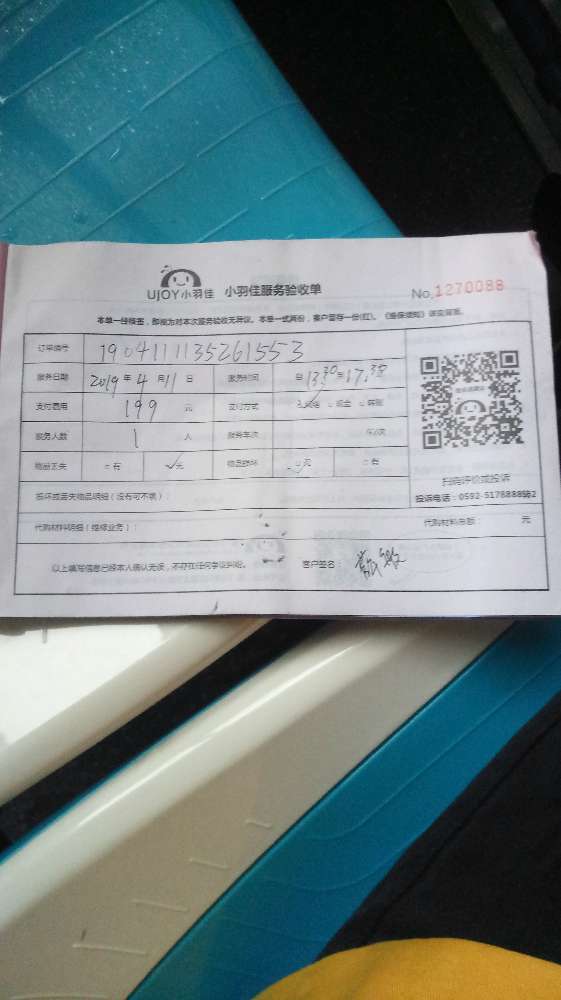 UJOY小羽佳 小羽佳服务验收单 No.1270088
本单一经核签,即视为对本次服务验收无异议。本单一式两份,客户留存一份(红)。《维保须知》详见背面。
订单编号 190411113526 1553
服务日期 2019年4月11日 服务时间 自13:30至17:38
支付费用 199元 支付方式 现金 转账
服务人数 1人 服务车次
物品丢失 有 无 物品损坏 无 有
扫码评价或投诉
损坏或丢失物品明细(没有可不填):
投诉电话:0592-5178888转2
代购材料明细(维修业务): 代购材料总额: 元
以上填写信息已经本人确认无误,不存在任何争议纠纷。 客户签名: